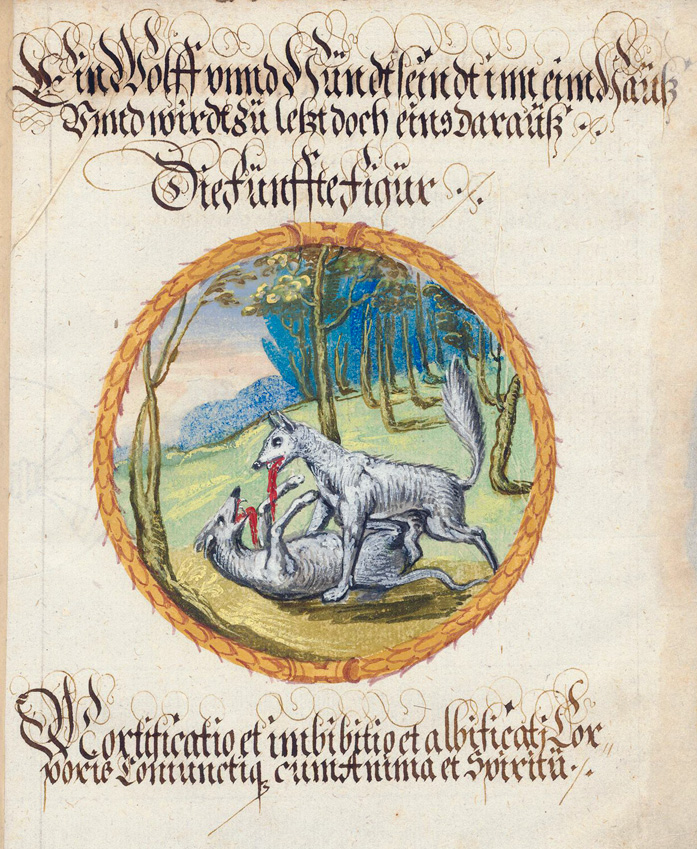 Ein Wolff vnnd Hündt seindt inn eim Hauß
Vnnd wirdt zü letzt doch eins Darauß
Die fünffte figür
Mortificatio et imbibitio et albificati Cor„
poris Coniunctiq, cum Anima et Spiritü